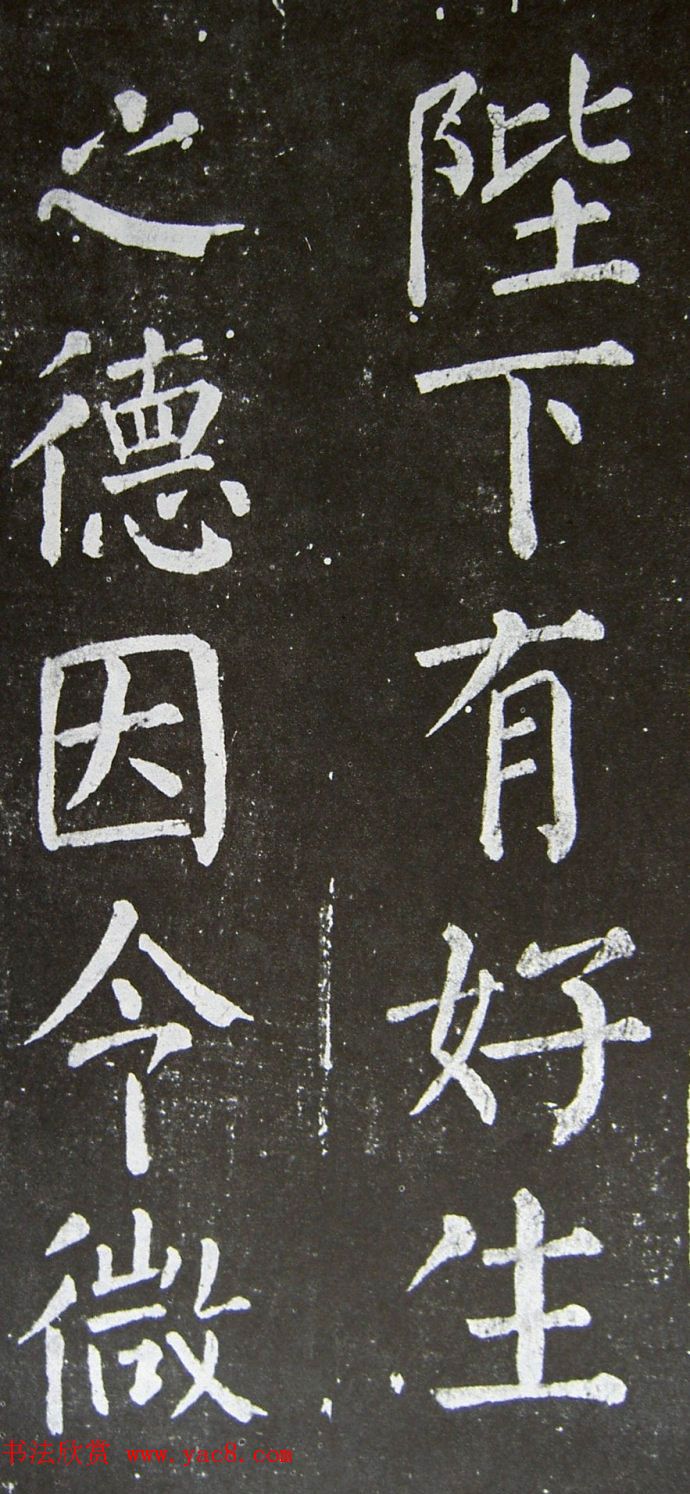 陛下有好生
之德因今微
书法欣赏 www.yac8.com